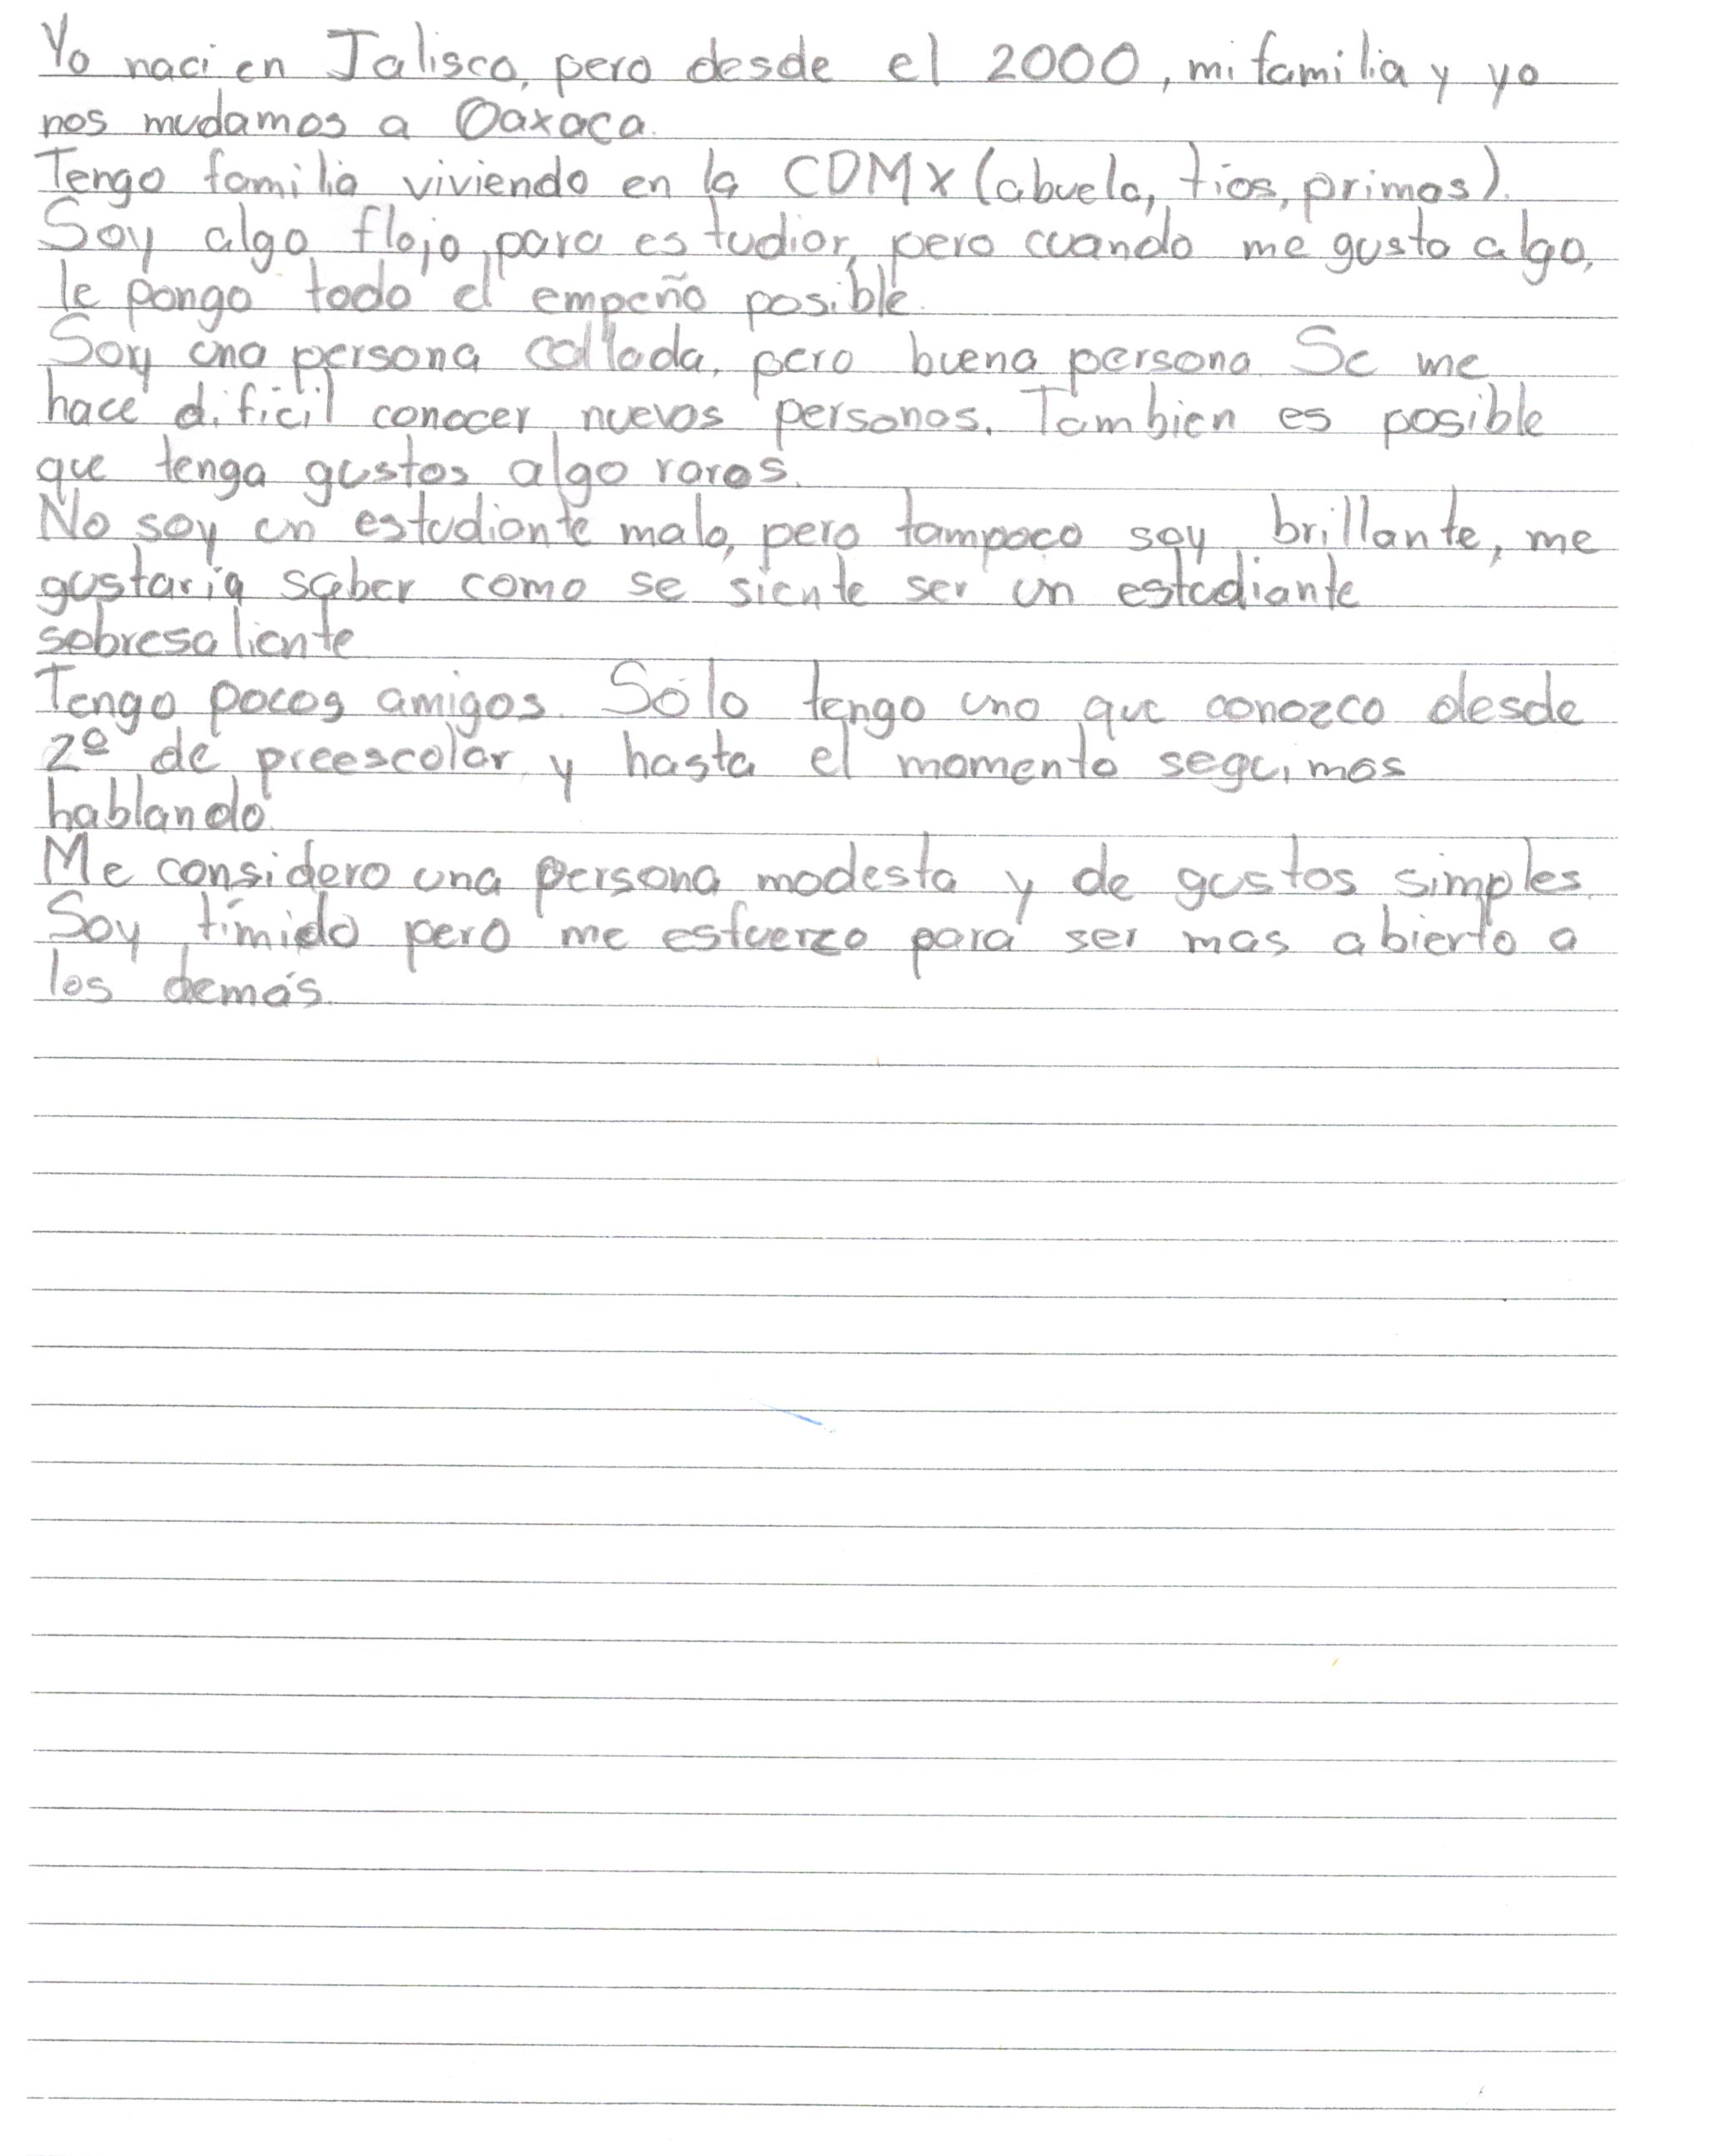 Yo naci en Jalisco, pero desde el 2000, mi familia y yo
nos mudamos a Oaxaca.
Tengo familia viviendo en la CDMX (abuela, tios, primos).
Soy algo flojo para estudiar, pero cuando me gusta algo,
le pongo todo el empeño posible.
Soy una persona callada, pero buena persona. Se me
hace dificil conocer nuevas personas. Tambien es posible
que tenga gustos algo raros.
No soy un estudiante malo, pero tampoco soy brillante, me
gustaria saber como se siente ser un estudiante
sobresaliente
Tengo pocos amigos. Sólo tengo uno que conozco desde
2º de preescolar y hasta el momento seguimos
hablando.
Me considero una persona modesta y de gustos simples.
Soy tímido pero me esfuerzo para ser mas abierto a
los demás.